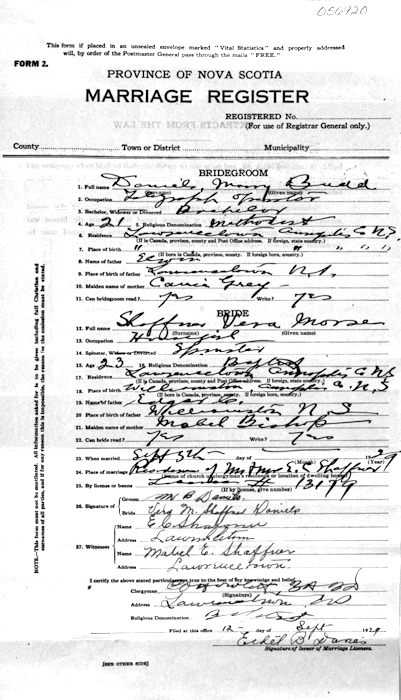 050920
This form if placed in an unsealed envelope marked "Vital Statistics" and properly addressed
will, by order of the Postmaster General pass through the mails "FREE."
FORM 2.
PROVINCE OF NOVA SCOTIA
MARRIAGE REGISTER
REGISTERED No.
(For use of Registrar General only.)
County Town or District Municipality
BRIDEGROOM
1. Full name Daniels Budd
(Surname) (Given name)
2. Occupation Telegraph Operator
3. Bachelor, Widower or Divorced Bachelor
4. Age 21 5. Religious Denomination Methodist
6. Residence Lawrencetown Annapolis Co N.S.
(If in Canada, province, county and Post Office address. If foreign, state country.)
7. Place of birth " " " "
(If born in Canada, province, county. If foreign born, country.)
8. Name of father
9. Place of birth of father Lawrencetown N.S.
10. Maiden name of mother Carrie Gray
11. Can bridegroom read? yes Write? yes
BRIDE
12. Full name Shaffner Vera Morse
(Surname) (Given name)
13. Occupation
14. Spinster, Widow or Divorced Spinster
15. Age 23 16. Religious Denomination Baptist
17. Residence Lawrencetown Annapolis Co N.S
(If in Canada, province, county and Post Office address. If foreign, state country.)
18. Place of birth Williamston Annapolis Co. N.S
(If born in Canada, province, county. If foreign born, country.)
19. Name of father
20. Place of birth of father Williamston N S
21. Maiden name of mother Mabel Bishop
22. Can bride read? Yes Write? Yes
23. When married Sept 5th day of (Month) 1929
24. Place of marriage Residence of Mr & Mrs E. C. Shaffner
(Name of church or clergyman's residence or location of dwelling house)
25. By license or banns License # 13179
(If by license, give number)
26. Signature of Groom M B Daniels
Bride Vera M. Shaffner Daniels
27. Witnesses Name E C Shaffner
Address Lawrencetown
Name Mabel E. Shaffner
Address Lawrencetown.
I certify the above stated particulars are true to the best of my knowledge and belief.
Clergyman
(Signature)
Address Lawrencetown NS
Religious Denomination Baptist
Filed at this office 12- day of Sept 1929
Ethel B
Signature of Issuer of Marriage Licenses.
[SEE OTHER SIDE]
NOTE.—This form must not be mutilated. All information asked for is to be given including full Christian and
surnames of all parties, and if for any reason this is impossible, the reason for the omission must be stated.